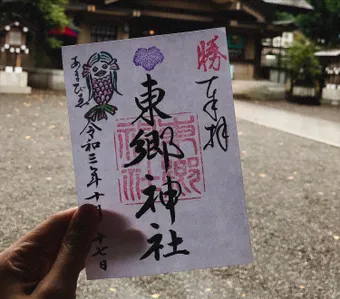 勝
奉拝
東郷神社
東郷神社
あまびゑ
令和三年十月十七日